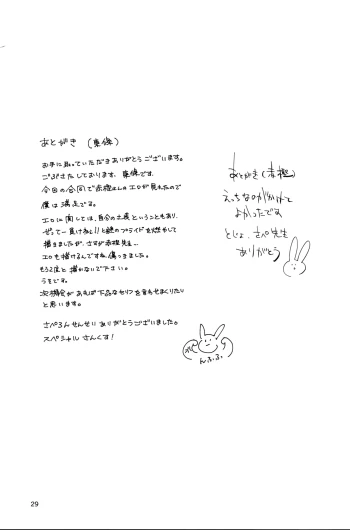 あとがき
お手に取っていただきありがとうございます。
ごぶさたしております、東條です。
今回の合同で赤樫さんのエロが見れたので
僕は満足です。
エロに関しては、自分の土俵ということもあり、
ぜってー負けねぇ!!と謎のプライドを燃やして
描きましたが、さすが赤樫先生…
エロも描けるんですね。傷つきました。
もう2度と描かないで下さい。
うそです。
次機会があれば下品なセリフを言わせまくりたい
と思います。
さぺろんせんせいありがとうございました。
スペシャルさんくす!
んふふ
あとがき
えっちなのがかけて
よかったです
とじょ、さぺ先生
ありがとう
29